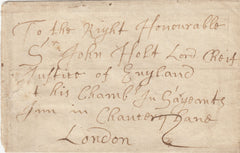 To the Right Honourable
Sr John Holt Lord Cheif
Justice of England
at his Chamb: In Serjeants
Inn in Chancery Lane
London